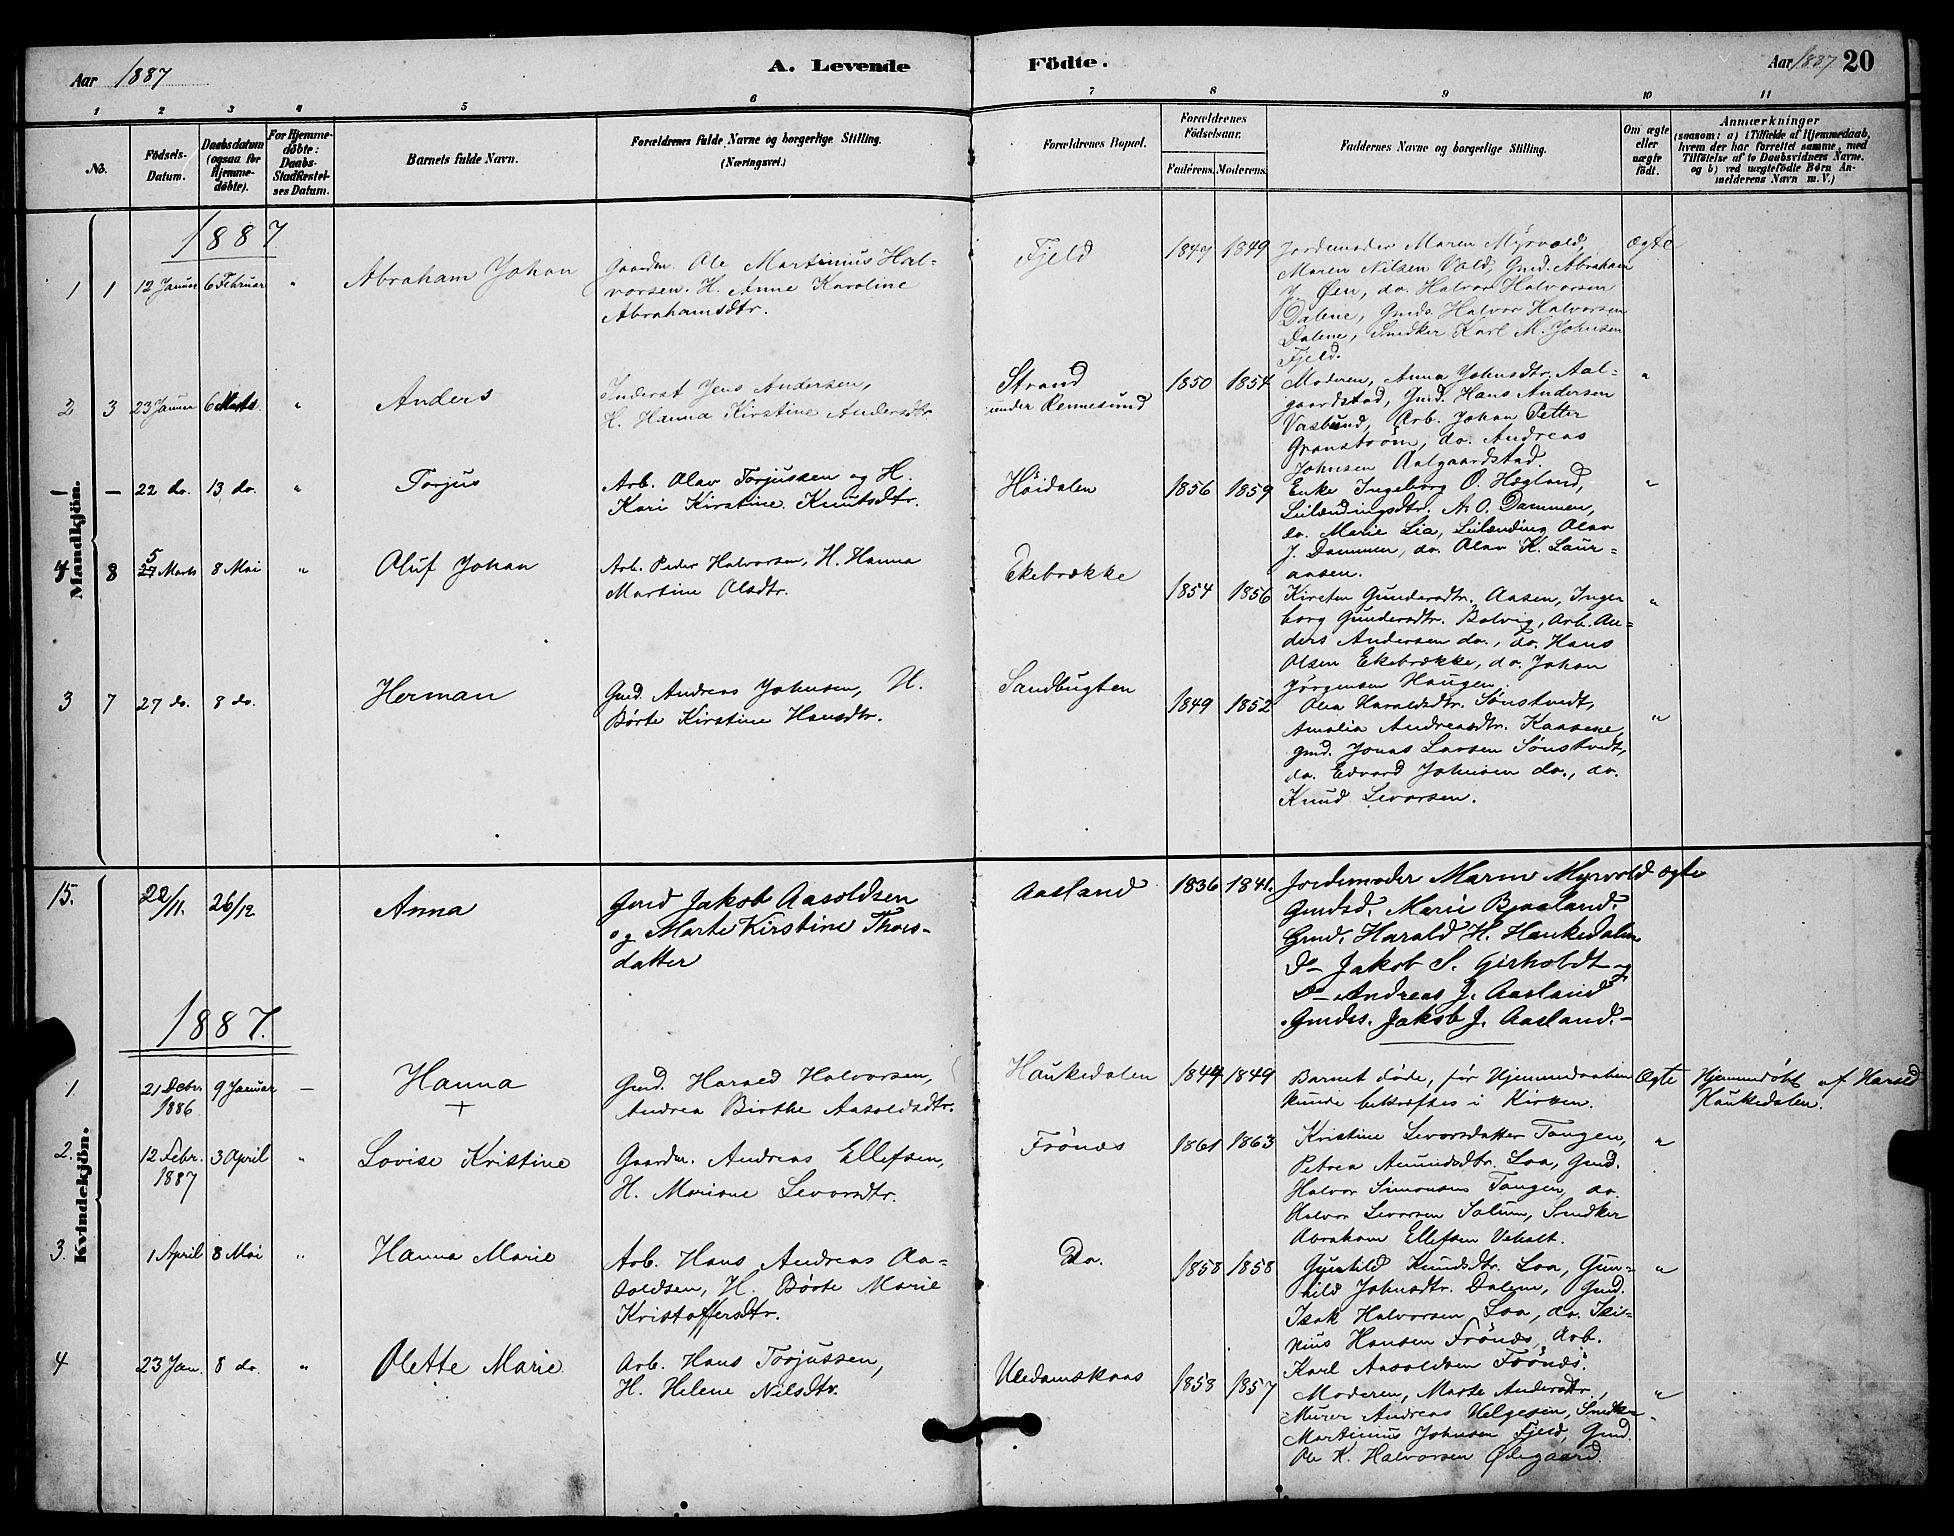 Aar 1887
A. Levende
Födte.
Aar 1887 20
1 2 3 4 5 6 7 8 9 10 11
No.
Födsels-
Datum.
Daabsdatum
(ogsaa for
Hjemme-
döbte).
For Hjemme-
döbte:
Daabs-
Stadfæstel-
ses Datum.
Barnets fulde Navn.
Forældrenes fulde Navne og borgerlige Stilling.
(Næringsvei.)
Forældrenes Bopæl.
Forældrenes
Födselsaar.
Faderens. Moderens.
Faddernes Navne og borgerlige Stilling.
Om ægte
eller
uægte
födt.
Anmærkninger
(saasom: a) i Tilfælde af Hjemmedaab,
hvem der har forrettet samme, med
Tilföielse af to Daabsvidners Navne.
og b) ved uægtefödte Börn An-
melderens Navn m. V.)
Mandkjön.
1887
1 1 12 Januar 6 Februar " Abraham Johan
Gaardm. Ole Martinius Hal-
vorsen. H. Anne Karoline
Abrahamsdtr.
Fjeld 1847 1849
Jordemoder Maren Myrvold,
Maren Nilsen Vold, Gmd. Abraham
J. Øen, do. Halvor Halvorsen
Dalene, Gmds. Halvor Halvorsen
Dalene, Snedker Karl M. Johnsen
Fjeld.
Ægte
2 3 23 Januar 6 Marts " Anders
Inderst Jens Andersen,
H. Hanna Kirstine Andersdtr.
Strand
under Rennesund
1850 1854
Moderen, Anna Johnsdtr. Aal-
gaardstad, Gmd. Hans Andersen
Vasbund, Arb. Johan Petter
Granstrøm, do. Andreas
Johnsen Aalgaardstad.
"
1 — 22 do. 13 do. " Torjus
Arb. Olav Torjussen og H.
Kari Kirstine Knutsdtr.
Höidalen 1856 1859
Enke Ingeborg O. Høgland,
Leilændingsdtr. A. O. Dammen,
do. Marie Lia, Leilænding Olav
J. Dammen, do. Olav K. Laur-
aasen.
"
4 8 5 Marts 8 Mai " Oluf Johan
Arb. Peder Halvorsen, H. Hanna
Martine Olsdtr.
Ekebrække 1854 1856
Kirsten Gundersdtr. Aasen, Inge-
borg Gundersdtr. Bolvig, Arb. An-
ders Andersen do., do. Hans
Olsen Ekebrække, do. Johan
Jörgensen Haugen.
"
3 7 27 do. 8 do. Herman
Gmd. Andreas Johnsen, H.
Börte Kirstine Hansdtr.
Sandbugten 1849 1852
Olea Haraldsdtr. Sönstvedt,
Amalia Andreasdtr. Kaasene,
gmd. Jonas Larsen Sönstvedt,
do. Edvard Johnsen do., do.
Knud Levorsen.
"
Kvindekjön.
15. 22/11. 26/12 Anna
Gmd Jakob Aasoldsen
og Marte Kirstine Thors-
datter
Aasland 1836 1841.
Jordemoder Maren Myrvold
Gmdsd. Marie Bjaaland.
Gmd. Harald H. Haukedalen
Do Jakob S. Gisholdt og
Do Andreas J. Aasland
Gmdss. Jakob J. Aasland.
ægte
1887.
1. 21 Debr. 1886 9 Januar — Hanna
+
Gmd. Harald Halvorsen,
Andrea Birthe Aasoldsdtr.
Haukedalen 1844 1849
Barnet döde, før Hjemmedaaben
kunde bekræftes i Kirken.
Ægte
Hjemmedöbt af Harald
Haukedalen.
2. 12 Febr. 1887 3 April " Lovise Kristine
Gaardm. Andreas Ellefsen,
H. Mariane Levorsdtr.
Frönæs 1861 1863
Kristine Levorsdatter Tangen,
Petrea Amundsdtr. Loa, Gmd.
Halvor Simonsens Tangen, do.
Halvor Levorsen Solum, Snedker
Abraham Ellefsen Veholt.
"
3. 1 April 8 Mai " Hanna Marie
Arb. Hans Andreas Aa-
soldsen, H. Börte Marie
Kristoffersdtr.
Do. 1858 1858
Gunhild Knudsdtr. Loa, Gun-
hild Johnsdtr. Dalene, Gmd.
Isak Halvorsen Loa, do. Isi-
nius Hansen Frönæs, Arb.
Karl Aasoldsen Frönæs.
"
4 23 Jan. 8 do. " Olette Marie
Arb. Hans Torjussen,
H. Helene Nilsdtr.
Uledamskaas 1853 1857
Moderen, Marte Andersdtr.,
Murer Andreas Helgesen, Snedker
Martinius Johnsen Fjeld, Gmd.
Ole K. Halvorsen Ødegaard.
"